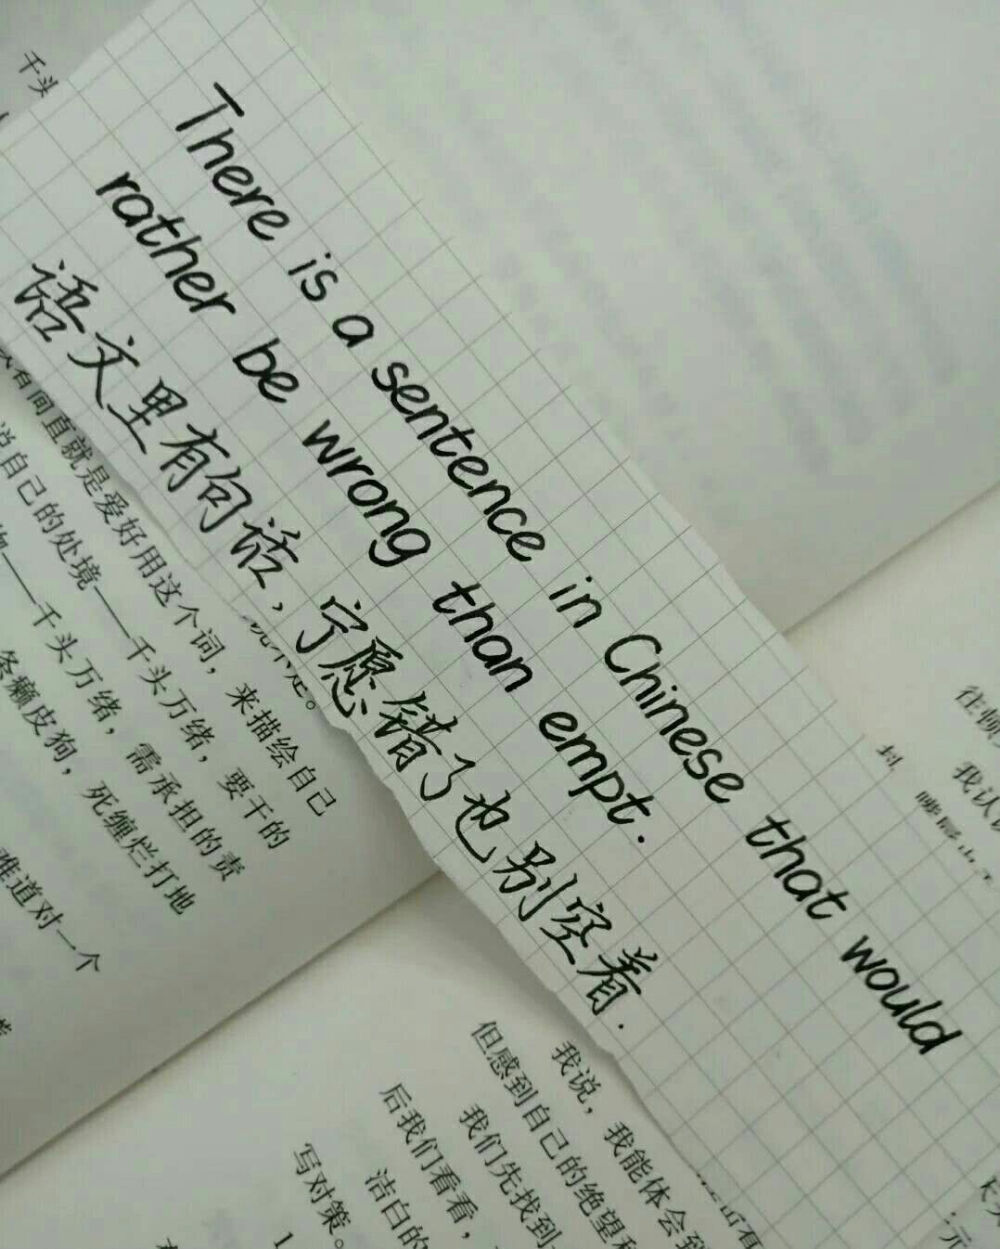 There is a sentence in Chinese that would
rather be wrong than empt.
语文里有句话，宁愿错了也别空着.
千头
有间直就是爱好用这个词，来描绘自己
说自己的处境——千头万绪，要干的
——千头万绪，需承担的责
条癞皮狗，死缠烂打地
难道对一个
往顿
我认
我说，我能体会到
但感到自己的绝望和
我们先找到
后我们看看，
洁白的
写对策。
1